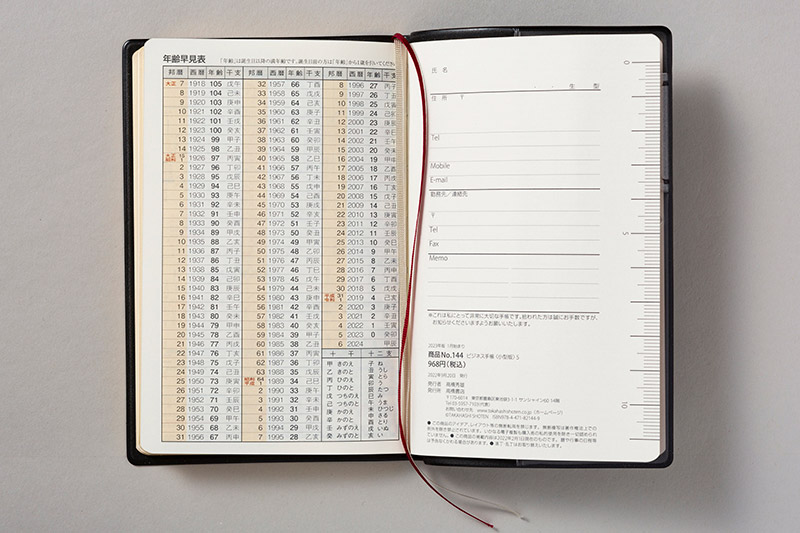 年齢早見表 「年齢」は誕生日以降の満年齢です。誕生日前の方は「年齢」から1歳を引いてください
邦暦 西暦 年齢 干支 邦暦 西暦 年齢 干支 邦暦 西暦 年齢 干支
大正 7 1918 105 戊午 32 1957 66 丁酉 8 1996 27 丙子
8 1919 104 己未 33 1958 65 戊戌 9 1997 26 丁丑
9 1920 103 庚申 34 1959 64 己亥 10 1998 25 戊寅
10 1921 102 辛酉 35 1960 63 庚子 11 1999 24 己卯
11 1922 101 壬戌 36 1961 62 辛丑 12 2000 23 庚辰
12 1923 100 癸亥 37 1962 61 壬寅 13 2001 22 辛巳
13 1924 99 甲子 38 1963 60 癸卯 14 2002 21 壬午
14 1925 98 乙丑 39 1964 59 甲辰 15 2003 20 癸未
大正 15 昭和 1 1926 97 丙寅 40 1965 58 乙巳 16 2004 19 甲申
2 1927 96 丁卯 41 1966 57 丙午 17 2005 18 乙酉
3 1928 95 戊辰 42 1967 56 丁未 18 2006 17 丙戌
4 1929 94 己巳 43 1968 55 戊申 19 2007 16 丁亥
5 1930 93 庚午 44 1969 54 己酉 20 2008 15 戊子
6 1931 92 辛未 45 1970 53 庚戌 21 2009 14 己丑
7 1932 91 壬申 46 1971 52 辛亥 22 2010 13 庚寅
8 1933 90 癸酉 47 1972 51 壬子 23 2011 12 辛卯
9 1934 89 甲戌 48 1973 50 癸丑 24 2012 11 壬辰
10 1935 88 乙亥 49 1974 49 甲寅 25 2013 10 癸巳
11 1936 87 丙子 50 1975 48 乙卯 26 2014 9 甲午
12 1937 86 丁丑 51 1976 47 丙辰 27 2015 8 乙未
13 1938 85 戊寅 52 1977 46 丁巳 28 2016 7 丙申
14 1939 84 己卯 53 1978 45 戊午 29 2017 6 丁酉
15 1940 83 庚辰 54 1979 44 己未 30 2018 5 戊戌
16 1941 82 辛巳 55 1980 43 庚申 平成 31 令和 1 2019 4 己亥
17 1942 81 壬午 56 1981 42 辛酉 2 2020 3 庚子
18 1943 80 癸未 57 1982 41 壬戌 3 2021 2 辛丑
19 1944 79 甲申 58 1983 40 癸亥 4 2022 1 壬寅
20 1945 78 乙酉 59 1984 39 甲子 5 2023 0 癸卯
21 1946 77 丙戌 60 1985 38 乙丑 6 2024 甲辰
22 1947 76 丁亥 61 1986 37 丙寅 十干 十二支
23 1948 75 戊子 62 1987 36 丁卯 甲 きのえ 子 ね
24 1949 74 己丑 63 1988 35 戊辰 乙 きのと 丑 うし
25 1950 73 庚寅 昭和 64 平成 1 1989 34 己巳 丙 ひのえ 寅 とら
26 1951 72 辛卯 2 1990 33 庚午 丁 ひのと 卯 う
27 1952 71 壬辰 3 1991 32 辛未 戊 つちのえ 辰 たつ
28 1953 70 癸巳 4 1992 31 壬申 己 つちのと 巳 み
29 1954 69 甲午 5 1993 30 癸酉 庚 かのえ 午 うま
30 1955 68 乙未 6 1994 29 甲戌 辛 かのと 未 ひつじ
31 1956 67 丙申 7 1995 28 乙亥 壬 みずのえ 申 さる
癸 みずのと 酉 とり
戌 いぬ
亥 い
氏名
生 型
住所 〒
Tel
Mobile
E-mail
勤務先／連絡先
〒
Tel
Fax
Memo
※これは私にとって非常に大切な手帳です。拾われた方は誠にお手数ですが、
お知らせくださいますようお願いいたします。
2023年版 1月始まり
商品No.144 ビジネス手帳〈小型版〉5
968円（税込）
2022年9月20日 発行
発行者 高橋秀雄
発行所 高橋書店
〒170-6014 東京都豊島区東池袋3-1-1 サンシャイン60 14階
0
5
10